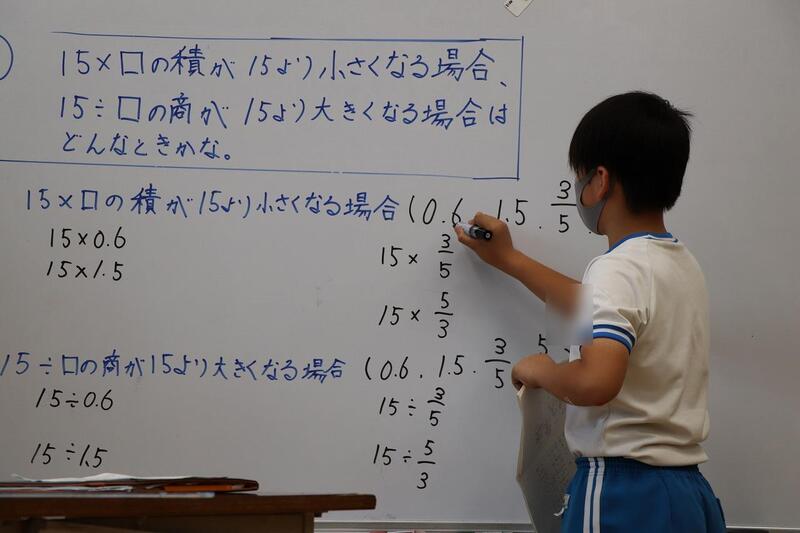 15×□の積が15より小さくなる場合、
15÷□の商が15より大きくなる場合は
どんなときかな。
15×□の積が15より小さくなる場合(0.6.1.5.3/5.
15×0.6
15×1.5
15×3/5
15×5/3
15÷□の商が15より大きくなる場合(0.6.1.5.3/5 5
15÷0.6
15÷1.5
15÷3/5
15÷5/3